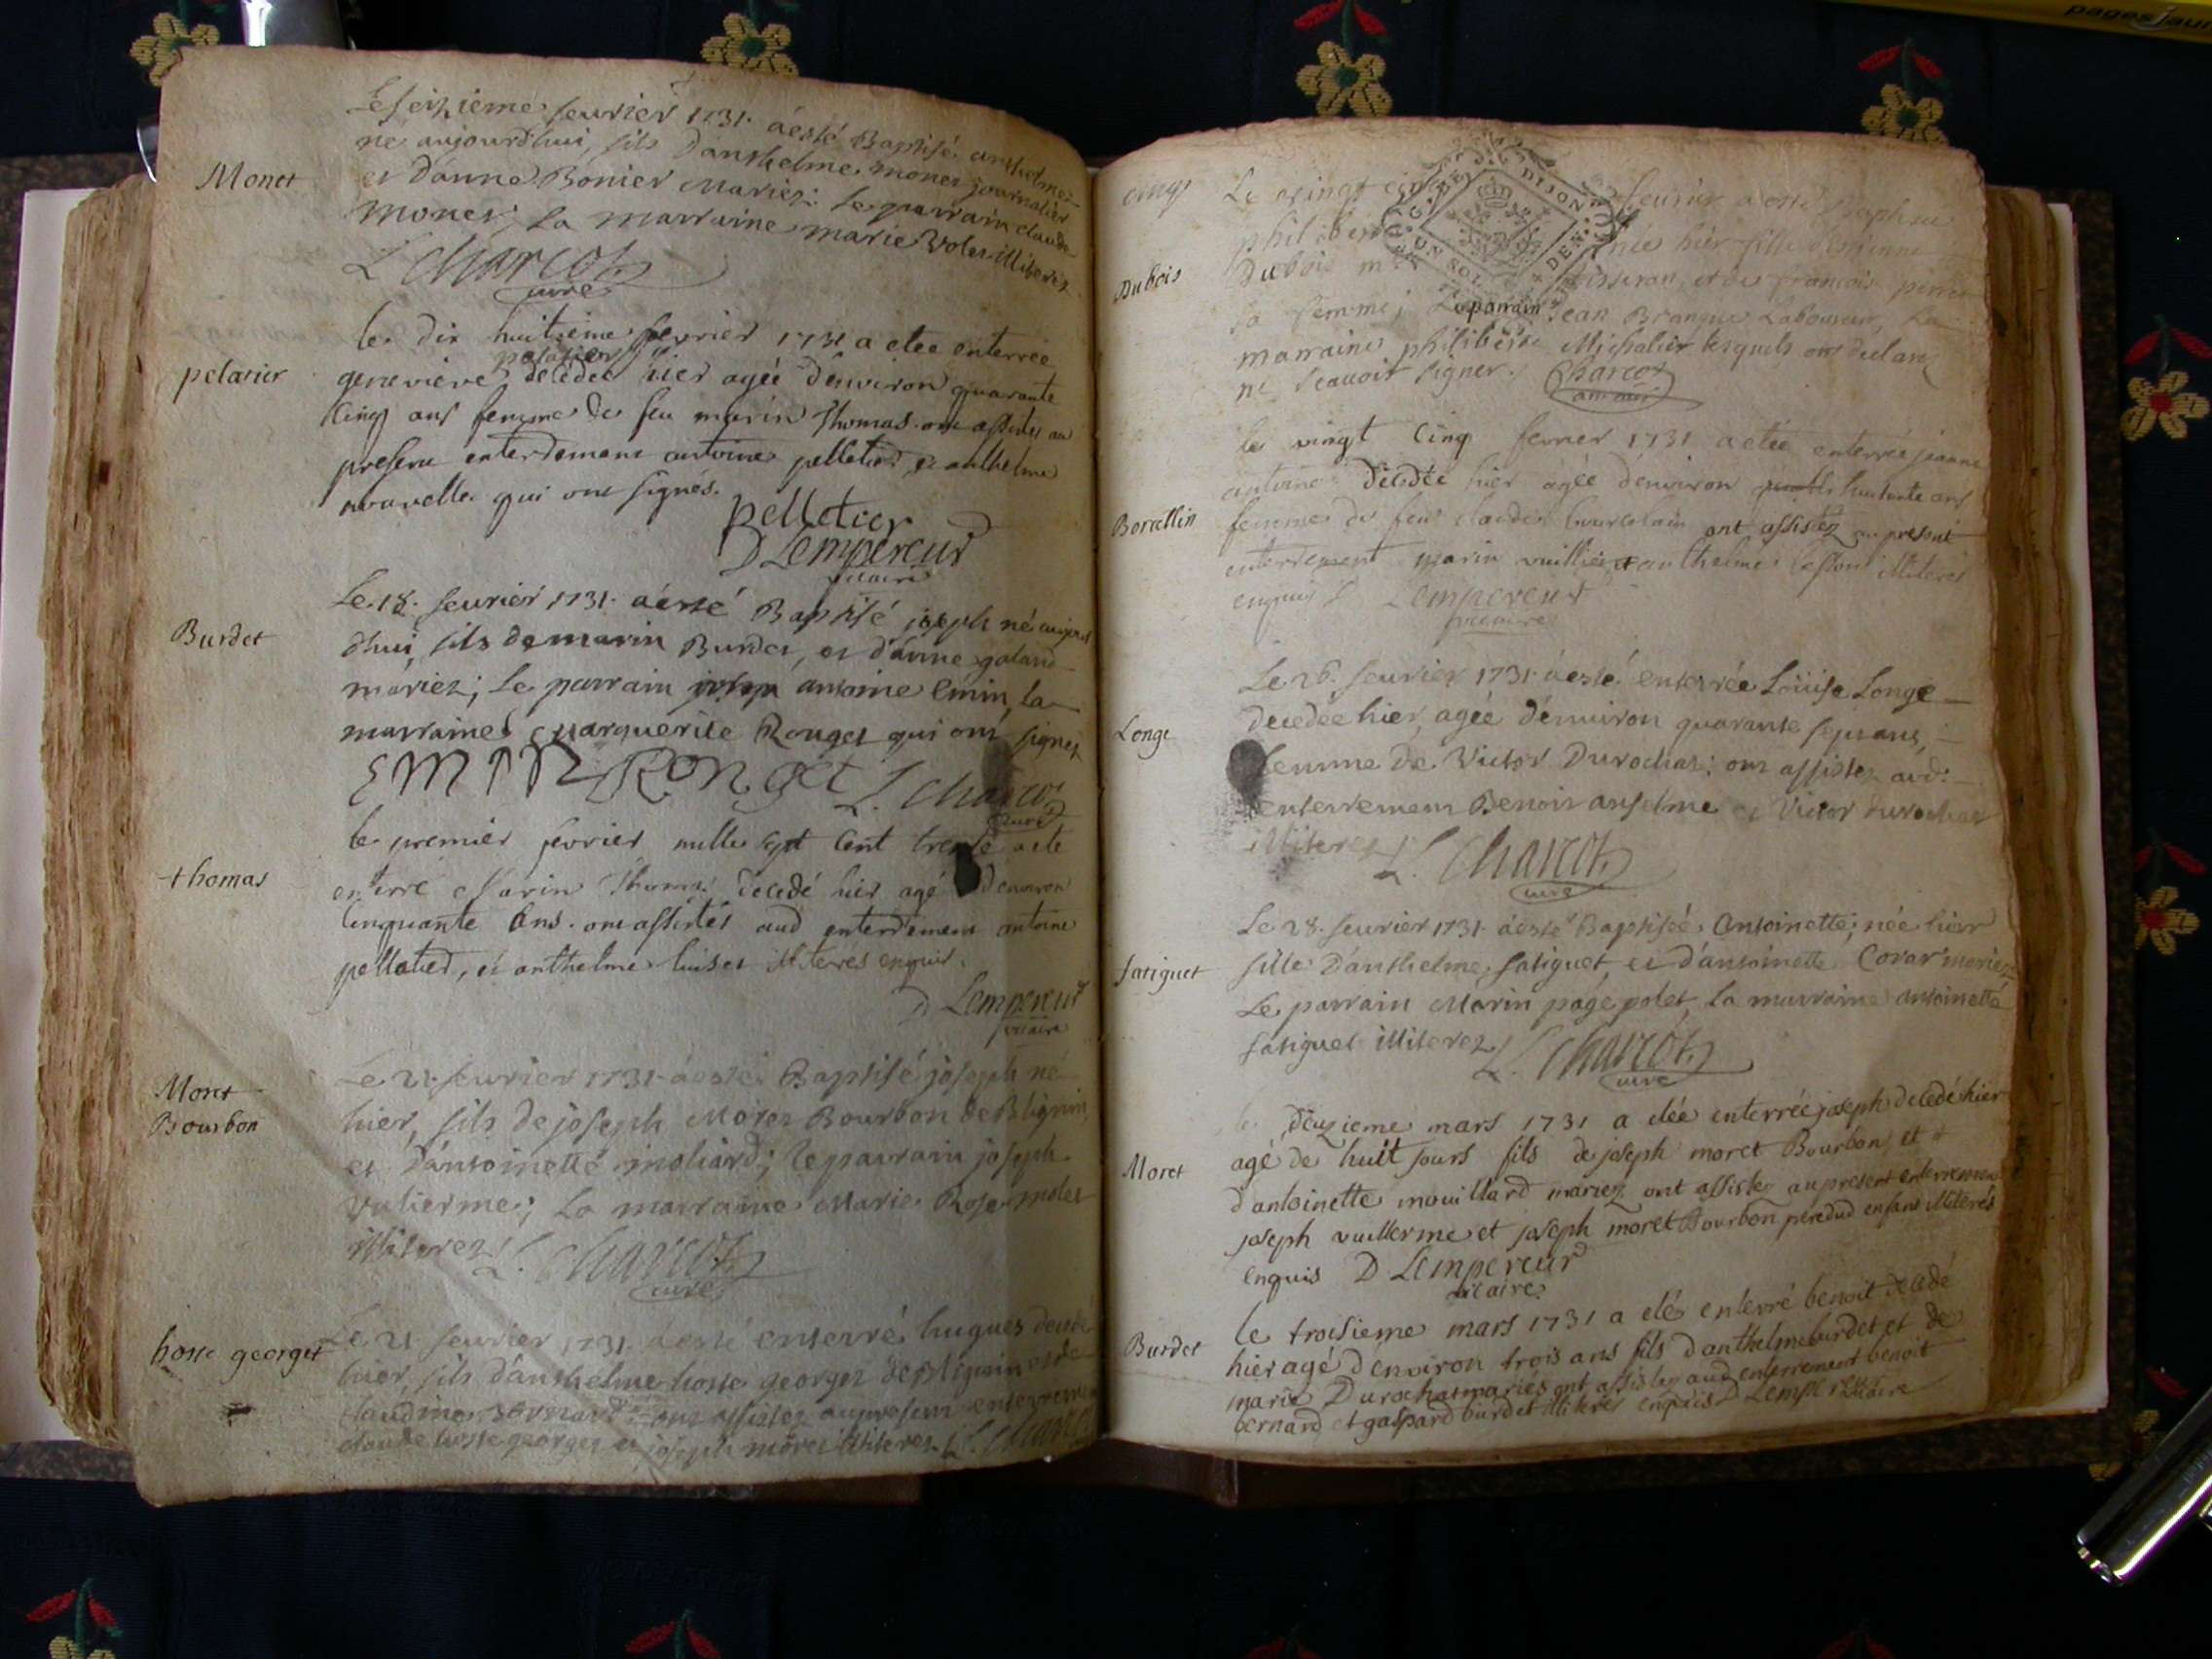 Le seizieme feurier 1731. a esté Baptisé anthelme
né aujourdhui, fils Danthelme monet journalier
Monet
et d'anne Bonier Mariez: Le parrain claude
monet; La marraine marie Volet illiterez
L. Charcot
curé
le dix huitieme fevrier 1731 a etée enterrée
pelatier
genevieve pelatier decedée hier agée denviron quarante
cinq ans femme de feu marin thomas. ont assistés au
present enterrement antoine pelletier et anthelme
qui ont signés.
pelletier
D Lempereur
vicaire
Le 18. feurier 1731. a esté Baptisé joseph né aujour
Burdet
dhui, fils de marin Burdet, et d'anne galand
mariez; Le parrain antoine Emin, La
marraine Marguerite Rouget qui ont signez
EMIN Rouget L. Charcot
curé
le premier fevrier mille sept cent trente a ete
thomas
enterré Marin Thomas decedé hier agé denviron
Cinquante Ans. ont assistés aud enterrement antoine
pellatier, et anthelme illiteres enquis.
D Lempereur
vicaire
Moret
Bourbon
Le 21. feurier 1731. a esté Baptisé joseph né
hier, fils de joseph Moret Bourbon de Blignin
et d'antoinette moliard; Le parrain joseph
vulierme; La marraine Marie Rose molet
illiterez L. Charcot
curé
Le 21 feurier 1731. a esté enterré hugues decedé
hosse georget
hier, fils d'anthelme hosse georget de Blignin et de
claudine ont assistez au present enterrement
claude hosse georget et joseph moret illiterez. L. Charcot
cinq
Le vingt feurier a esté Baptisée
philiberte née hier fille d'estienne
Dubois
Dubois tisseran, et de francoise perret
sa femme; Le parrain Jean Brangue Laboureur, La
marraine philiberte Michalier lesquels ont declarez
ne scauoir signer. Charcot
le vingt cinq fevrier 1731 a etée enterrée jeanne
antoine decedée hier agée denviron huitante ans
Borcellin
femme de feu claude ont assistez au present
enterrement marin vuillier et anthelme illiteres
enquis D Lempereur
vicaire
Le 26. feurier 1731. a esté enterrée Loüise Longe
Longe
decedée hier, agée d'enuiron quarante sept ans,
femme de Victor Durochat: ont assistez aud.
enterrement Benoit anselme et Victor durochat
illiterez L. Charcot
curé
Le 28. feurier 1731. a esté Baptisée Antoinette; née hier
fatiguet
fille D'anthelme fatiguet, et d'antoinette Corar mariez
Le parrain Marin page polet, La marraine antoinette
fatiguet illiterez L. Charcot
curé
le deuzieme mars 1731 a etée enterrée joseph decedé hier
Moret
agé de huit jours fils de joseph moret Bourbon, et
d'antoinette mouillard mariez ont assistez au present enterrement
joseph vuillerme et joseph moret Bourbon pere dud enfant illiteres
enquis D Lempereur
vicaire
Burdet
le troisieme mars 1731 a eté enterré benoit decedé
hier agé denviron trois ans fils danthelme burdet et de
marie Durochat mariés ont assistez aud enterrement benoit
bernard et gaspard burdet illiteres enquis D Lempereur
vicaire
DIJON
UN SOL
pages jaun